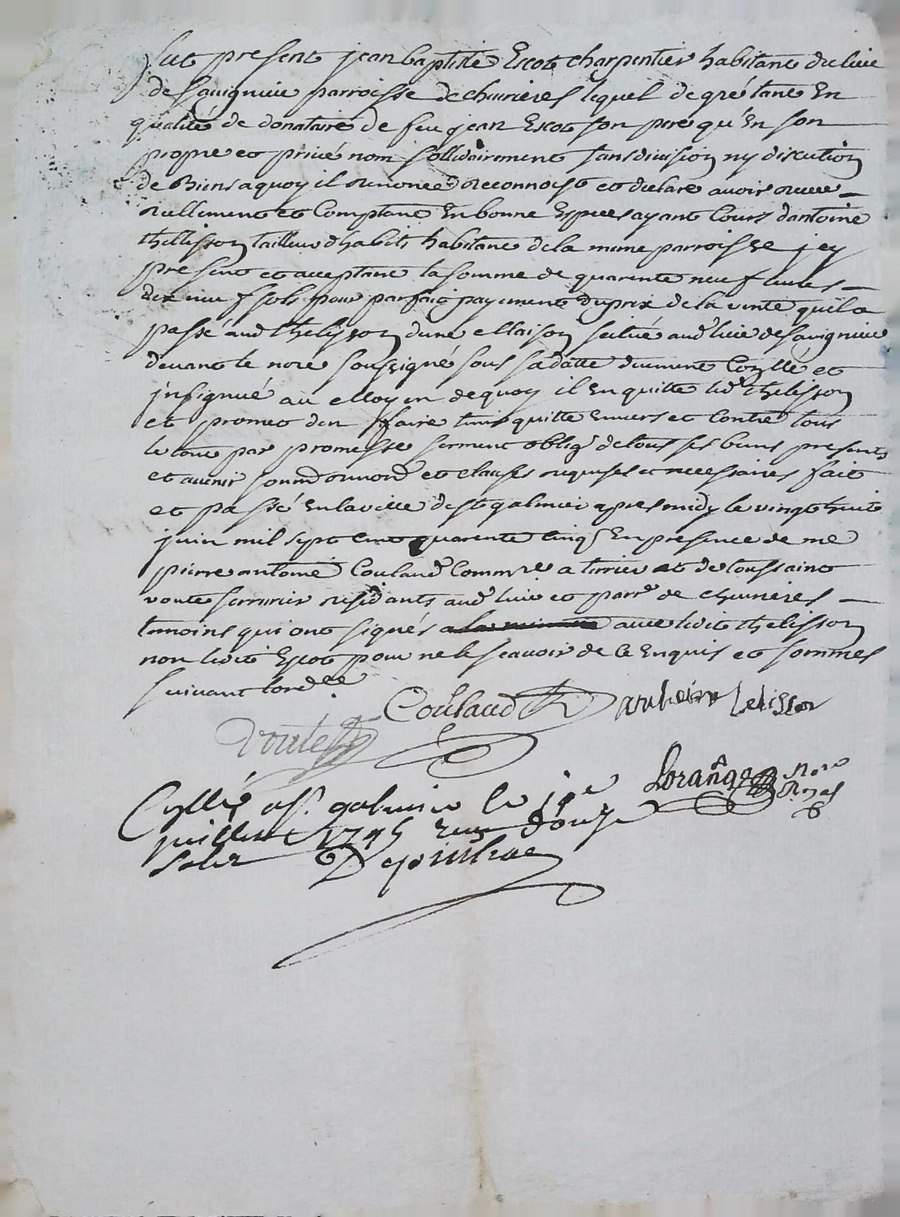 fut present jean baptiste Escot charpentier habitant du lieu
de Savignieu parroisse de chevrieres lequel de gré tant En
qualité de donataire de feu jean Escot son pere qu'En son
propre et privé nom sollidairement sans division ny discution
de Biens aquoy il renonce reconnoist et declare avoir receu
reellement et Comptant En bonne Especes ayant Cours dantoine
thellisson tailleur d'habits habitant de la meme parroisse jcy
present et acceptant la somme de quarente neuf livres
dix neuf sols pour parfait payement du prix de la vente quil a
passé aud thelisson dune Maison scitué aud lieu de Savignieu
devant le nore soussigné sous sa datte duement Conllé et
jnsignué au Moyen dequoy il En quitte led thelisson
et promet den ffaire tenir quitte Envers et Contre tous
le tout par promesse serment oblig de tous ses biens presents
et avenir et clauses requises et necessaires fait
et passé En la ville de st galmier apres midy le vingt huit
juin mil sept Cent quarente Cinq En presence de me
pierre antoine Coulaud et de toussaint
voute serrurier residants aud lieu et parr de chevrieres
temoins qui ont signés avec ledit thelisson
non ledit Escot pour ne le scavoir de ce Enquis et sommés
suivant lord
Coulaud
voute
Lorange Nore Royal
Cllé a st galmier le
juillet 1745 reçu douze
solz